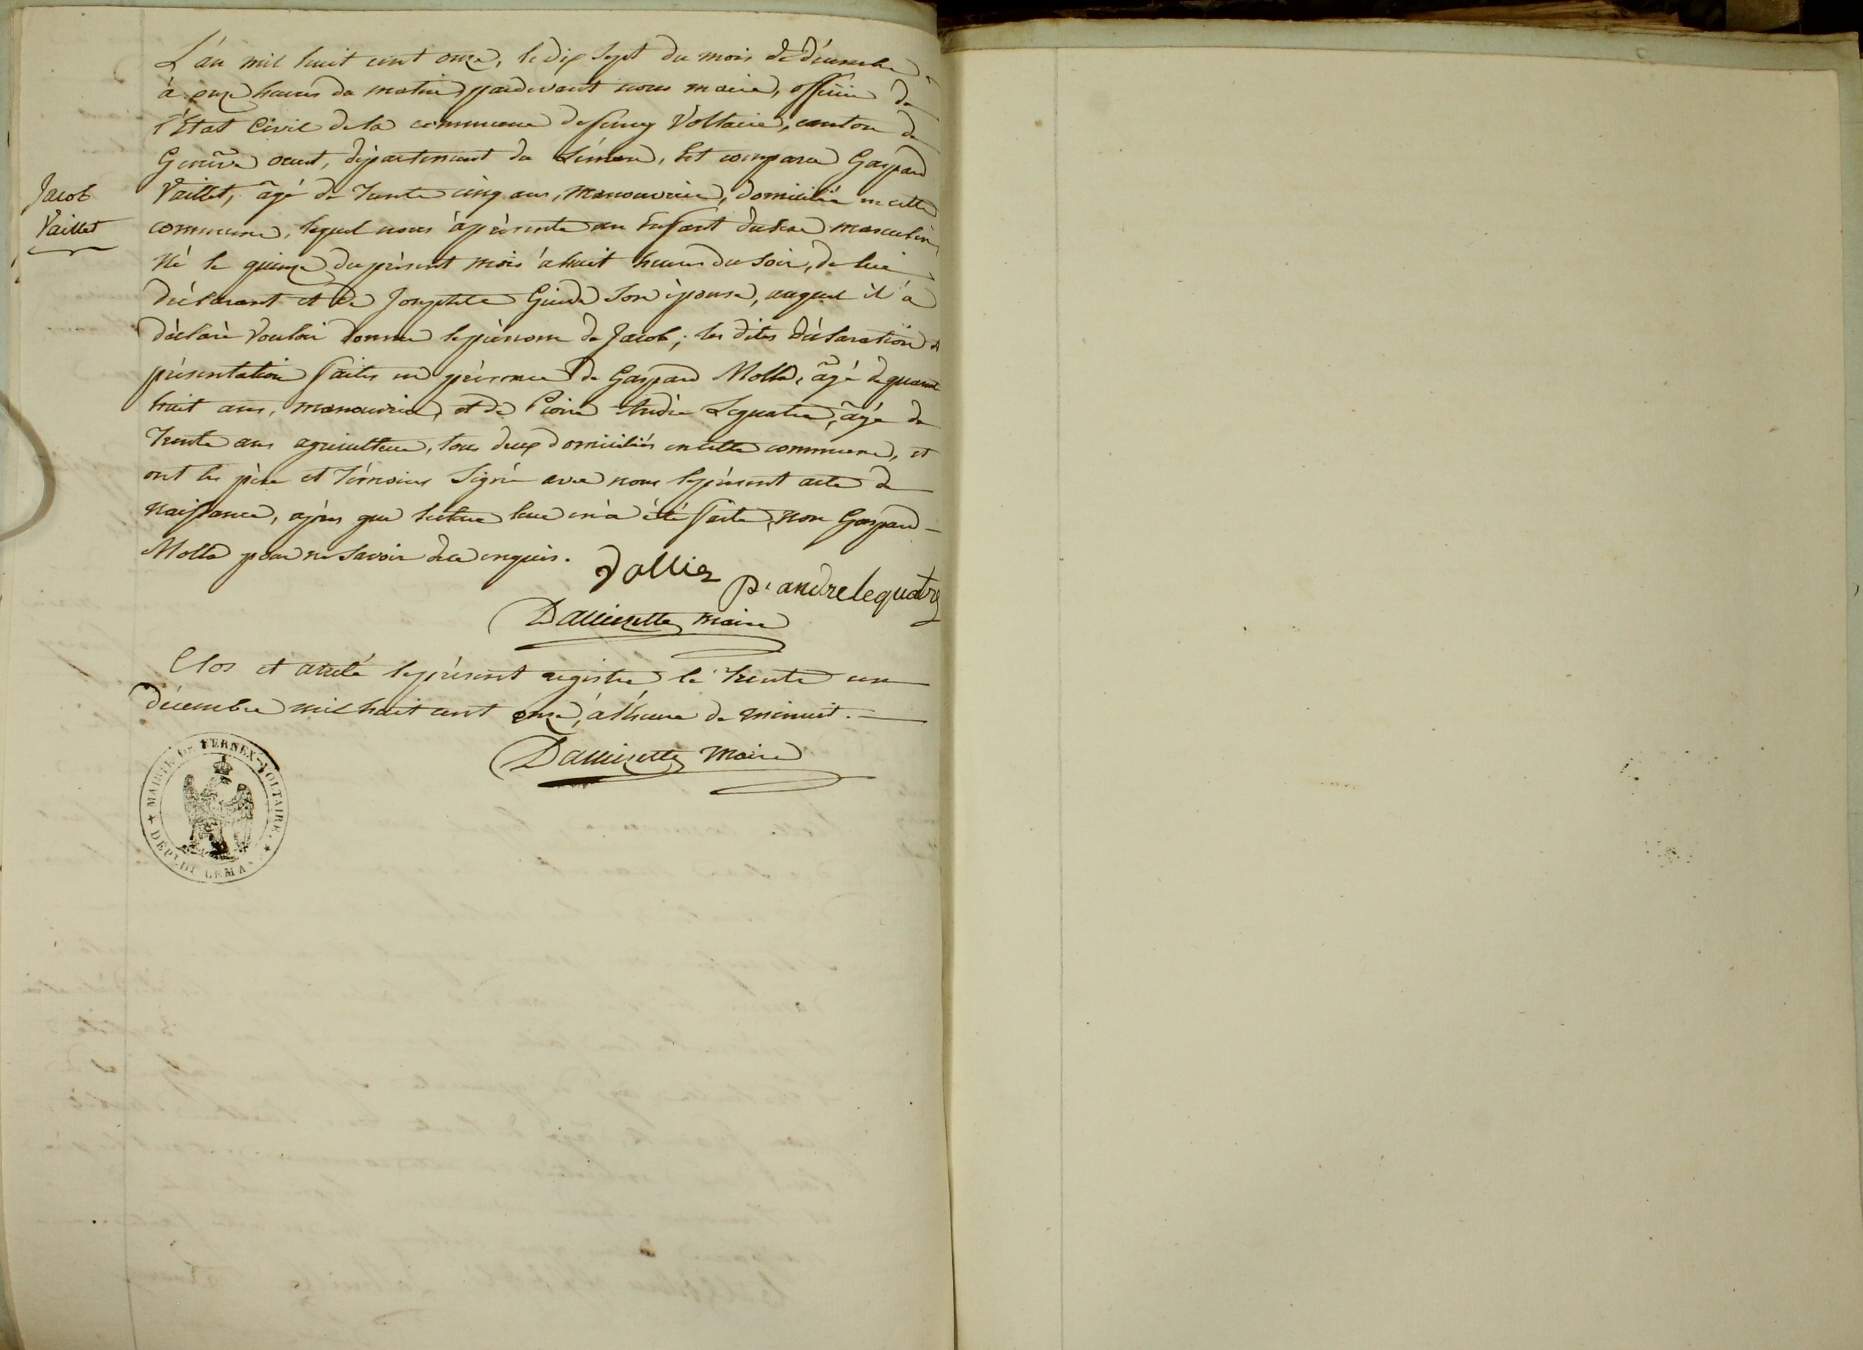 Jacob
Vaillet
L'an mil huit cent onze, le dix sept du mois de décembre
à onze heures du matin pardevant nous maire, officier de
l'État Civil de la commune de ferney Voltaire, canton de
Genève ouest, département du Léman, Est comparu Gaspard
Vaillet, âgé de trente cinq ans, manouvrier, domicilié en cette
commune, lequel nous à présenté un Enfant du sexe masculin,
né le quinze du présent mois à huit heures du soir, de lui
déclarant et de Josephte son épouse, auquel il a
déclaré vouloir donner le prénom de Jacob; les dites déclaration et
présentation faites en présence de Gaspard Molla, âgé de quarante
huit ans, manouvrier, et de Pierre André Lequatre, âgé de
trente ans agriculteur, tous deux domiciliés en cette commune, et
ont les père et témoins signé avec nous le présent acte de
naissance, après que lecture leur en a été faite, non Gaspard
Molla pour ne savoir de ce enquis.
Vallier
p. andre lequatre
maire
Clos et arrêté le présent registre le trente un
décembre mil huit cent onze, à l'heure de minuit.
Maire
MAIRIE DE FERNEX-VOLTAIRE
DEP. DU LEMAN